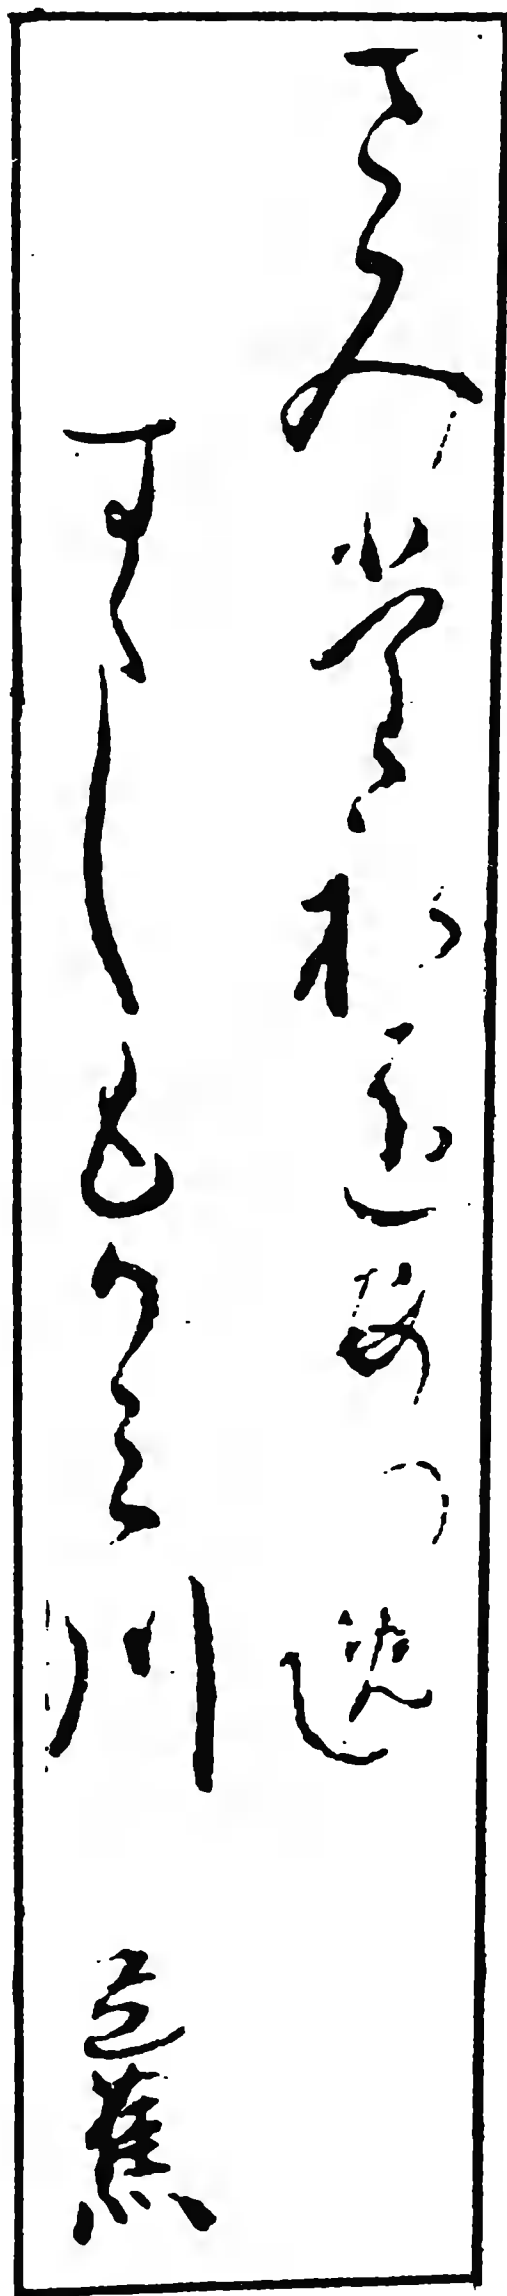 さみたれをあつめて
すゝしもかみ川
芭蕉